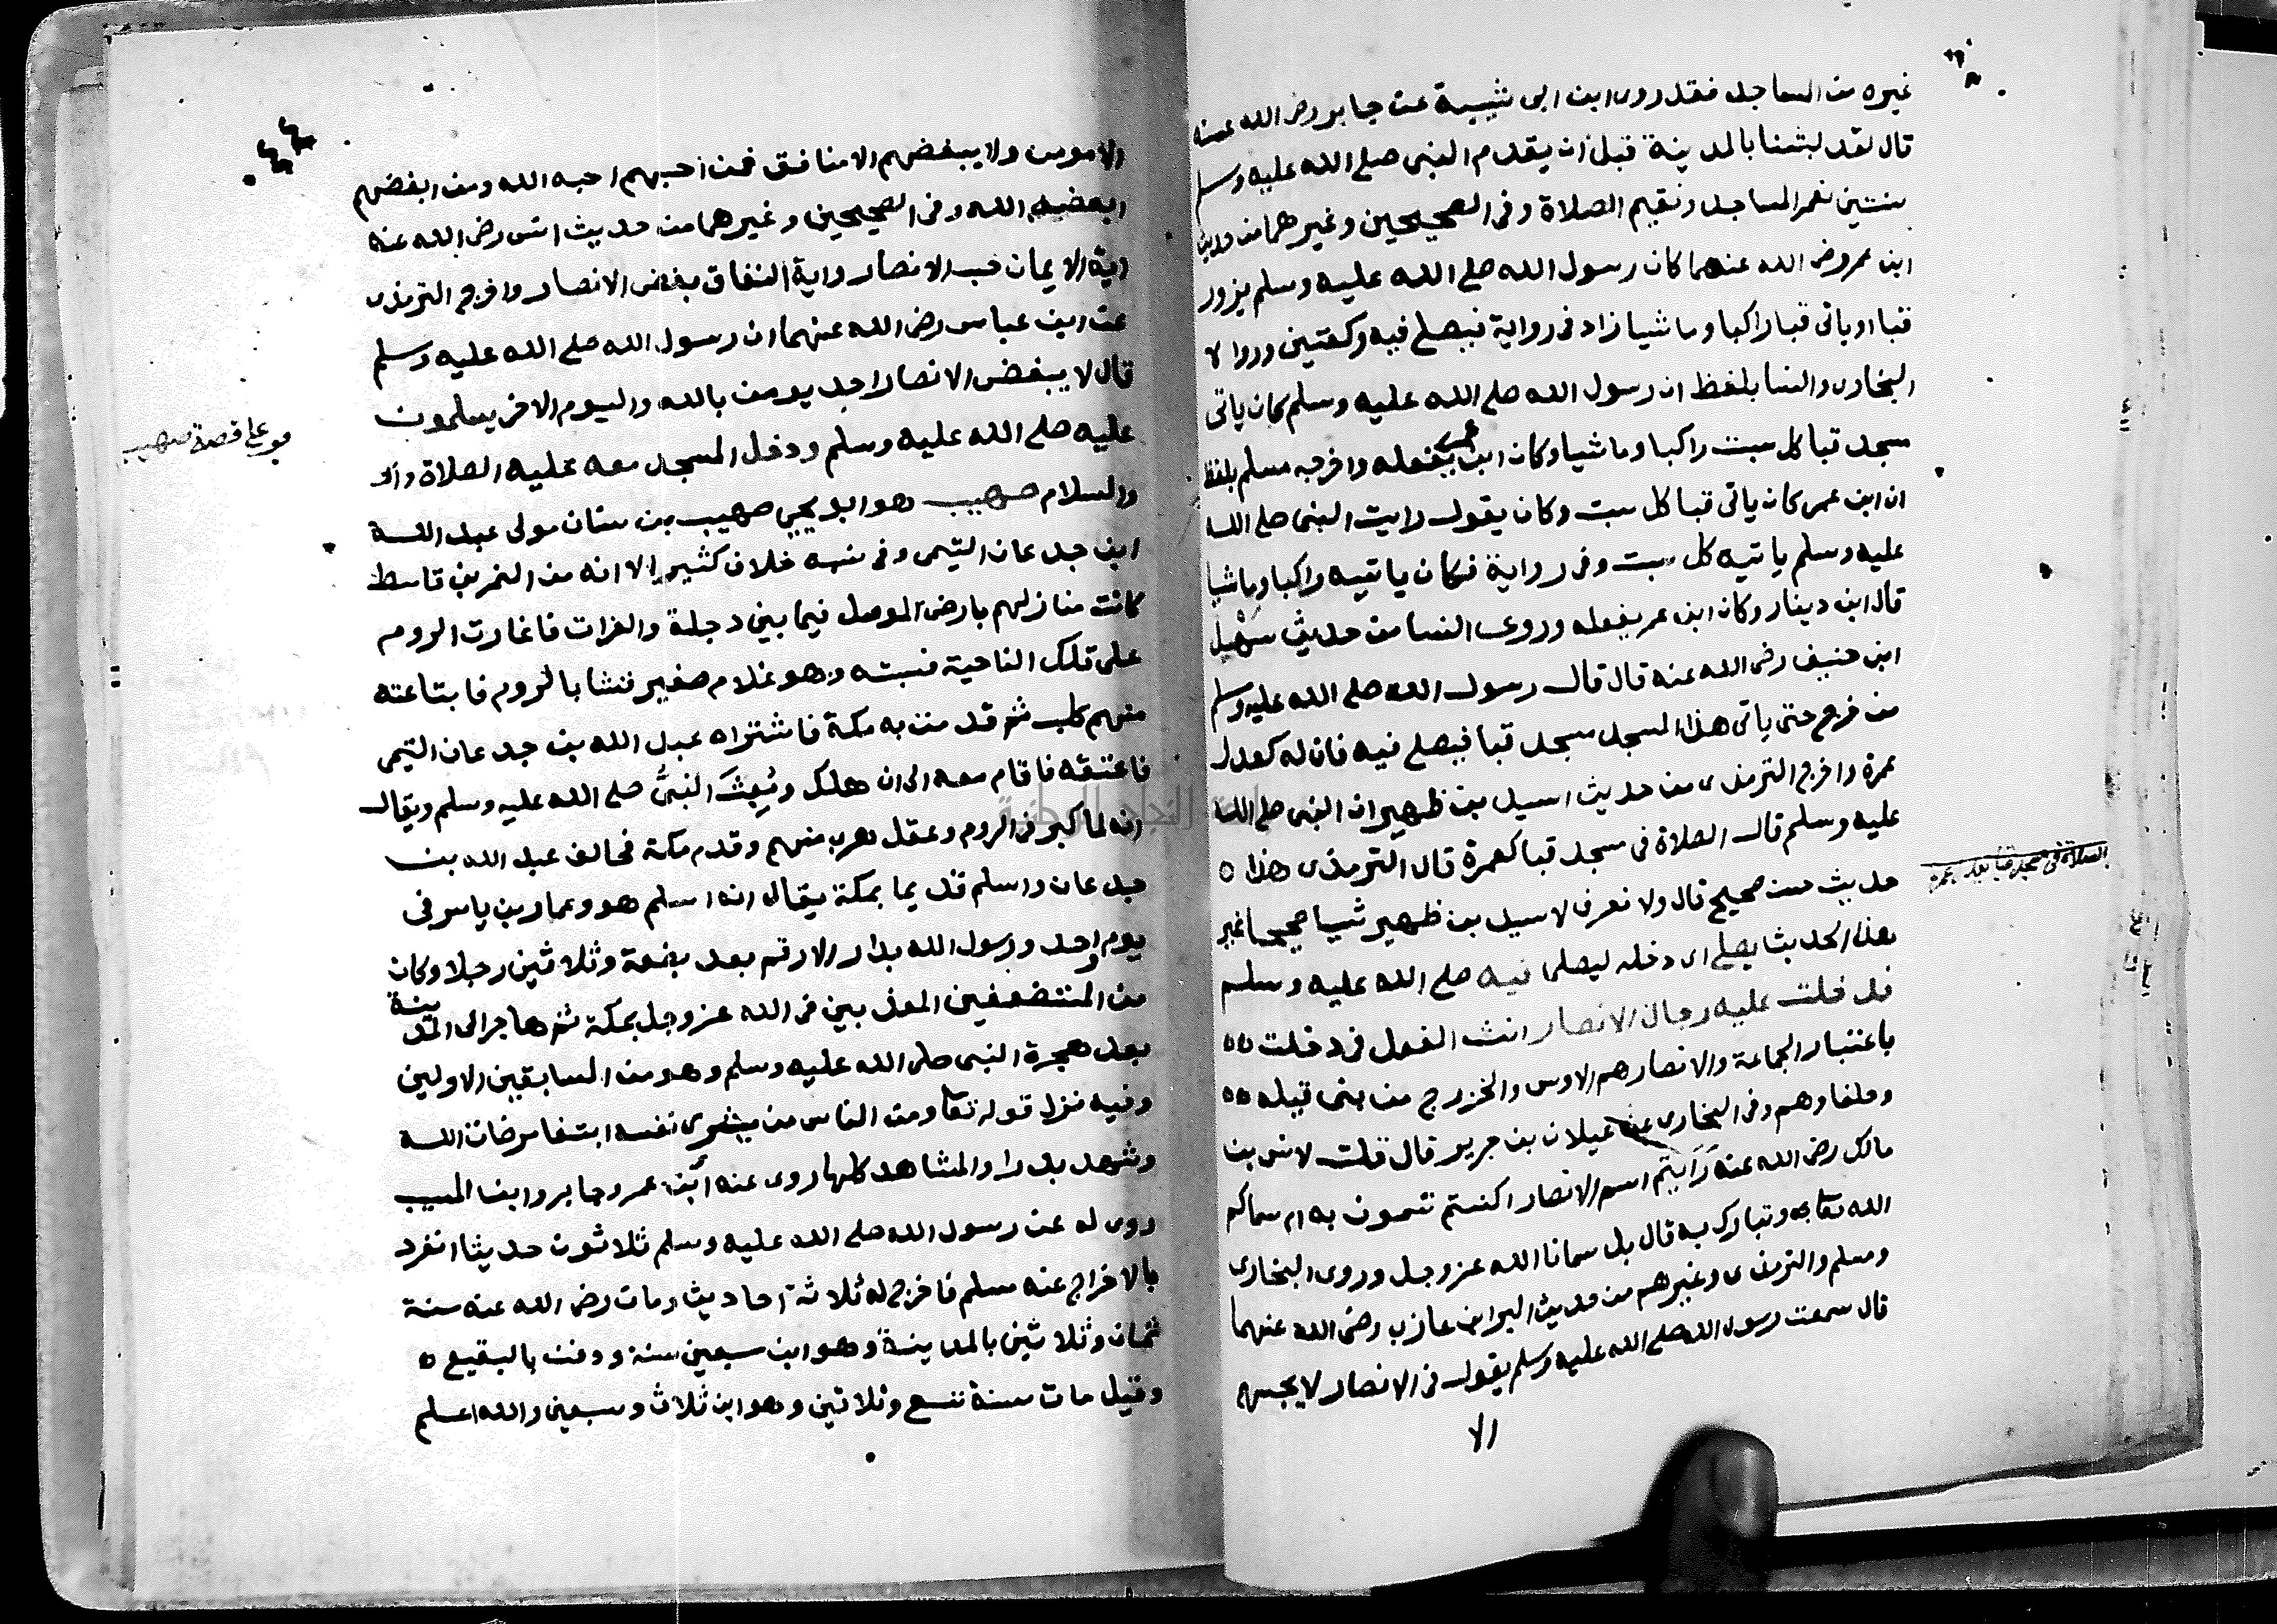 غيره من المساجد فقد روى ابن ابى شيبة عن جابر رضى الله عنه
قال لقد لبثنا بالمدينة قبل ان يقدم النبى صلى الله عليه وسلم
سنتين نعمر المساجد ونقيم الصلاة وفى الصحيحين وغيرهما من حديث
ابن عمر رضى الله عنهما كان رسول الله صلى الله عليه وسلم يزور
قبا او ياتى قبا راكبا وماشيا زاد فى رواية فيصلى فيه ركعتين ورواه
البخارى والنسا بلفظ ان رسول الله صلى الله عليه وسلم كان ياتى
مسجد قبا كل سبت راكبا وماشيا وكان ابن عمر يفعله واخرجه مسلم بلفظ
ان ابن عمر كان ياتى قبا كل سبت وكان يقول رايت النبى صلى الله
عليه وسلم ياتيه كل سبت وفى رواية فكان ياتيه راكبا وماشيا
قال ابن دينار وكان ابن عمر يفعله وروى النسا من حديث سَهْل
ابن حنيف رضى الله عنه قال قال رسول الله صلى الله عليه وسلم
من خرج حتى ياتى هذا المسجد مسجد قبا فيصلى فيه فان له كعدل
عمرة واخرج الترمذى من حديث اسيد بن ظهير ان النبى صلى الله
عليه وسلم قال الصلاة فى مسجد قبا كعمرة قال الترمذى هذا ٥
الصلاة فى مسجد قبا تعدل عمرة
حديث حسن صحيح قال ولا نعرف لاسيد بن ظهير شيا صحيحا غير
هذا الحديث يصلى اى دخله ليصلى فيه صلى الله عليه وسلم
فدخلت عليه رجال الانصار انث الفعل فى دخلت ٥٥
باعتبار الجماعة والانصار هم الاوس والخزرج من بنى قيله ٥٥
وحلفاوهم وفى البخارى عن غيلان بن جرير قال قلت لانس بن
مالك رضى الله عنه رَايتم اسم الانصار اكنتم تسمون به ام سماكم
الله تعالى وتبارك به قال بل سمانا الله عز وجل وروى البخارى
ومسلم والترمذى وغيرهم من حديث البرا بن عازب رضى الله عنهما
قال سمعت رسول الله صلى الله عليه وسلم يقول فى الانصار لا يحبهم
الا
٤٤
الا مومن ولا يبغضهم الا منافق فمن احبهم احبه الله ومن ابغضهم
ابغضه الله وفى الصحيحين وغيرهما من حديث انس رضى الله عنه
اية الايمان حب الانصار واية النفاق بغض الانصار واخرج الترمذى
عن ابن عباس رضى الله عنهما ان رسول الله صلى الله عليه وسلم
قال لا يبغض الانصار احد يومن بالله واليوم الاخر يسلمون
عليه صلى الله عليه وسلم ودخل المسجد معه عليه الصلاة
والسلام صهيب هو ابو يحيى صهيب بن سنان مولى عبد الله
قصة صهيب
ابن جدعان التيمى وفى نسبه خلاف كثير الا انه من النمر بن قاسط
كانت منازلهم بارض الموصل فيما بين دجلة والفرات فاغارت الروم
على تلك الناحية فسبته وهو غلام صغير فنشا بالروم فابتاعته
منهم كلب ثم قدمت به مكة فاشتراه عبد الله بن جدعان التيمى
فاعتقه فاقام معه الى ان هلك وبُعِثَ النبىُّ صلى الله عليه وسلم ويقال
انه لما كبر فى الروم وعقل هرب منهم وقدم مكة فحالف عبد الله بن
جدعان واسلم قديما بمكة يقال انه اسلم هو وعمار بن ياسر فى
يوم واحد ورسول الله بدار الارقم بعد بضعة وثلاثين رجلا وكان
من المستضعفين المعذبين فى الله عز وجل بمكة ثم هاجر الى المدينة
بعد هجرة النبى صلى الله عليه وسلم وهو من السابقين الاولين
وفيه نزل قوله تعا ومن الناس من يشرى نفسه ابتغا مرضات الله
وشهد بدرا والمشاهد كلها روى عنه ابن عمر وجابر وابن المسيب
روى له عن رسول الله صلى الله عليه وسلم ثلاثون حديثا انفرد
بالاخراج عنه مسلم فاخرج له ثلاثة احاديث ومات رضى الله عنه سنة
ثمان وثلاثين بالمدينة وهو ابن سبعين سنة ودفن بالبقيع ٥
وقيل مات سنة تسع وثلاثين وهو ابن ثلاث وسبعين والله اعلم